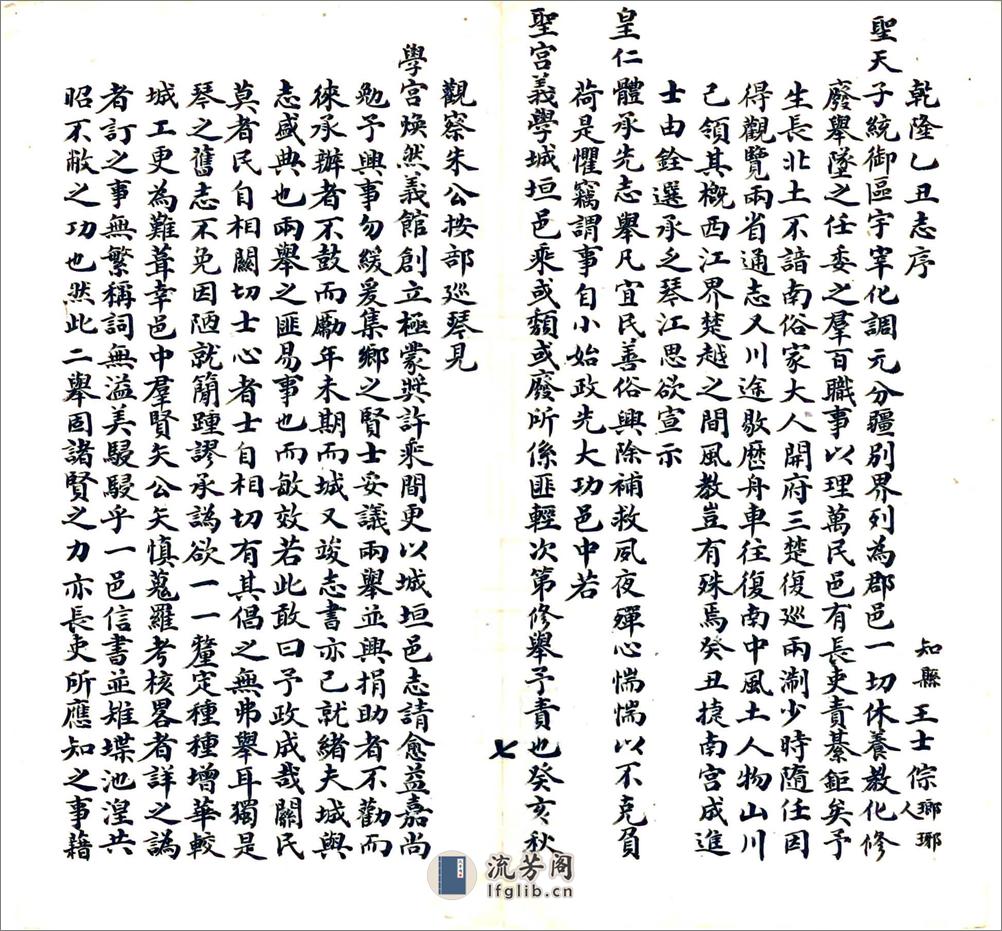 乾隆乙丑志序
知縣 王士倧 瑯琊人
聖天子統御區宇宰化調元分疆别界列為郡邑一切休養教化修
廢舉墜之任委之羣百職事以理萬民邑有長吏責綦鉅矣予
生長北土不諳南俗家大人開府三楚復廵兩淛少時隨任因
得觀覽兩省通志又川途歇歷舟車往復南中風土人物山川
已領其概西江界楚越之間風教豈有殊焉癸丑捷南宫成進
士由銓選承乏琴江思欲宣示
皇仁體承先志舉凡宜民善俗興除補救夙夜殫心惴惴以不克負
荷是懼竊謂事自小始政先大功邑中若
聖宫義學城垣邑乘或頽或廢所係匪輕次第修舉予責也癸亥秋
七
觀察朱公按部廵琴見
學宫煥然義館創立極蒙奨許乘間更以城垣邑志請愈益嘉尚
勉予興事勿緩爰集鄉之賢士妥議兩舉並興捐助者不勸而
徠承辦者不鼓而勵年未期而城又竣志書亦已就緒夫城與
志盛典也兩舉之匪易事也而敏效若此敢曰予政成哉關民
莫者民自相關切士心者士自相切有其倡之無弗舉耳獨是
琴之舊志不免因陋就簡踵謬承譌欲一一釐定種種增華較
城工更為難葺幸邑中羣賢矢公矢慎蒐羅考核畧者詳之譌
者訂之事無繁稱詞無溢美駸駸乎一邑信書並雉堞池湟共
昭不敝之功也然此二舉固諸賢之力亦長吏所應知之事藉
流芳阁
lfglib.cn